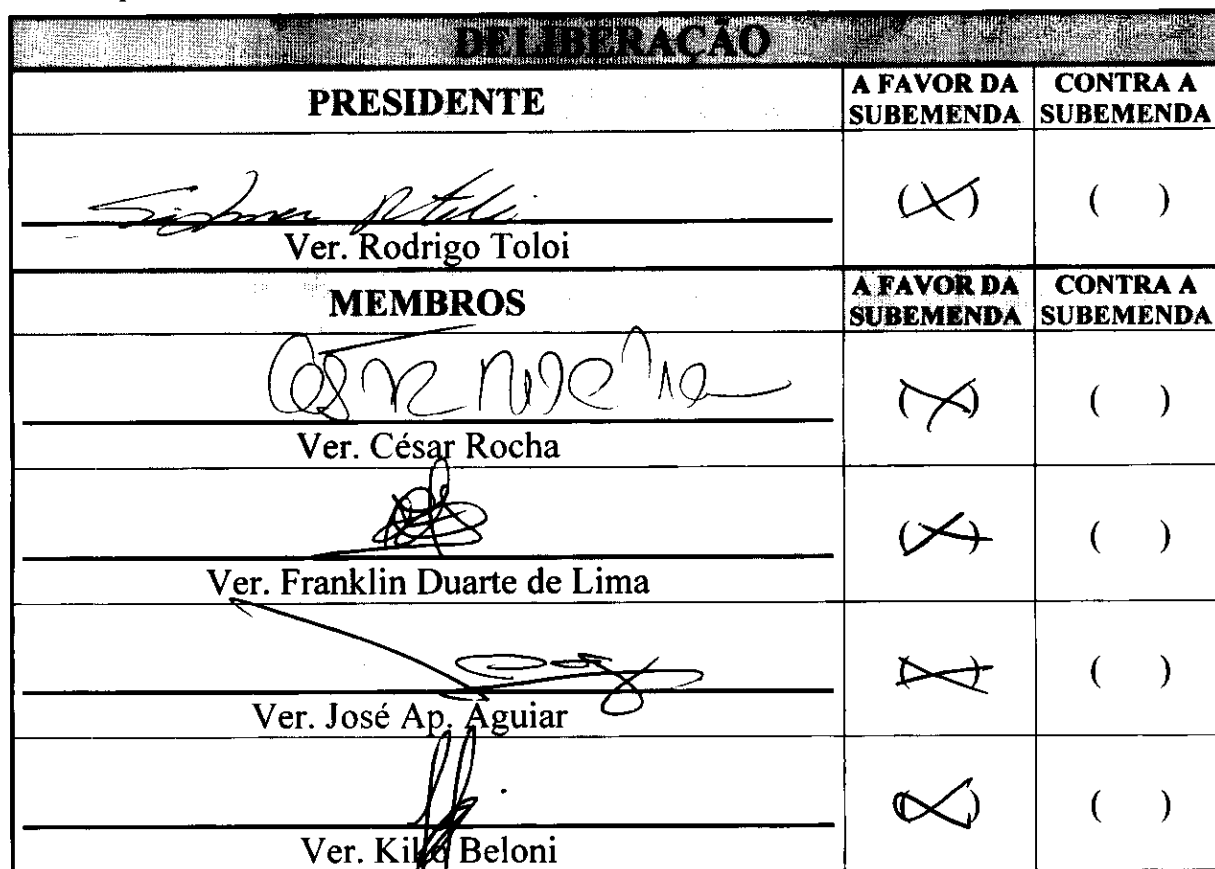 DELIBERAÇÃO
PRESIDENTE
A FAVOR DA SUBEMENDA
CONTRA A SUBEMENDA
(X)
( )
Ver. Rodrigo Toloi
MEMBROS
A FAVOR DA SUBEMENDA
CONTRA A SUBEMENDA
(X)
( )
Ver. César Rocha
(X)
( )
Ver. Franklin Duarte de Lima
(X)
( )
Ver. José Ap. Aguiar
(X)
( )
Ver. Kiko Beloni